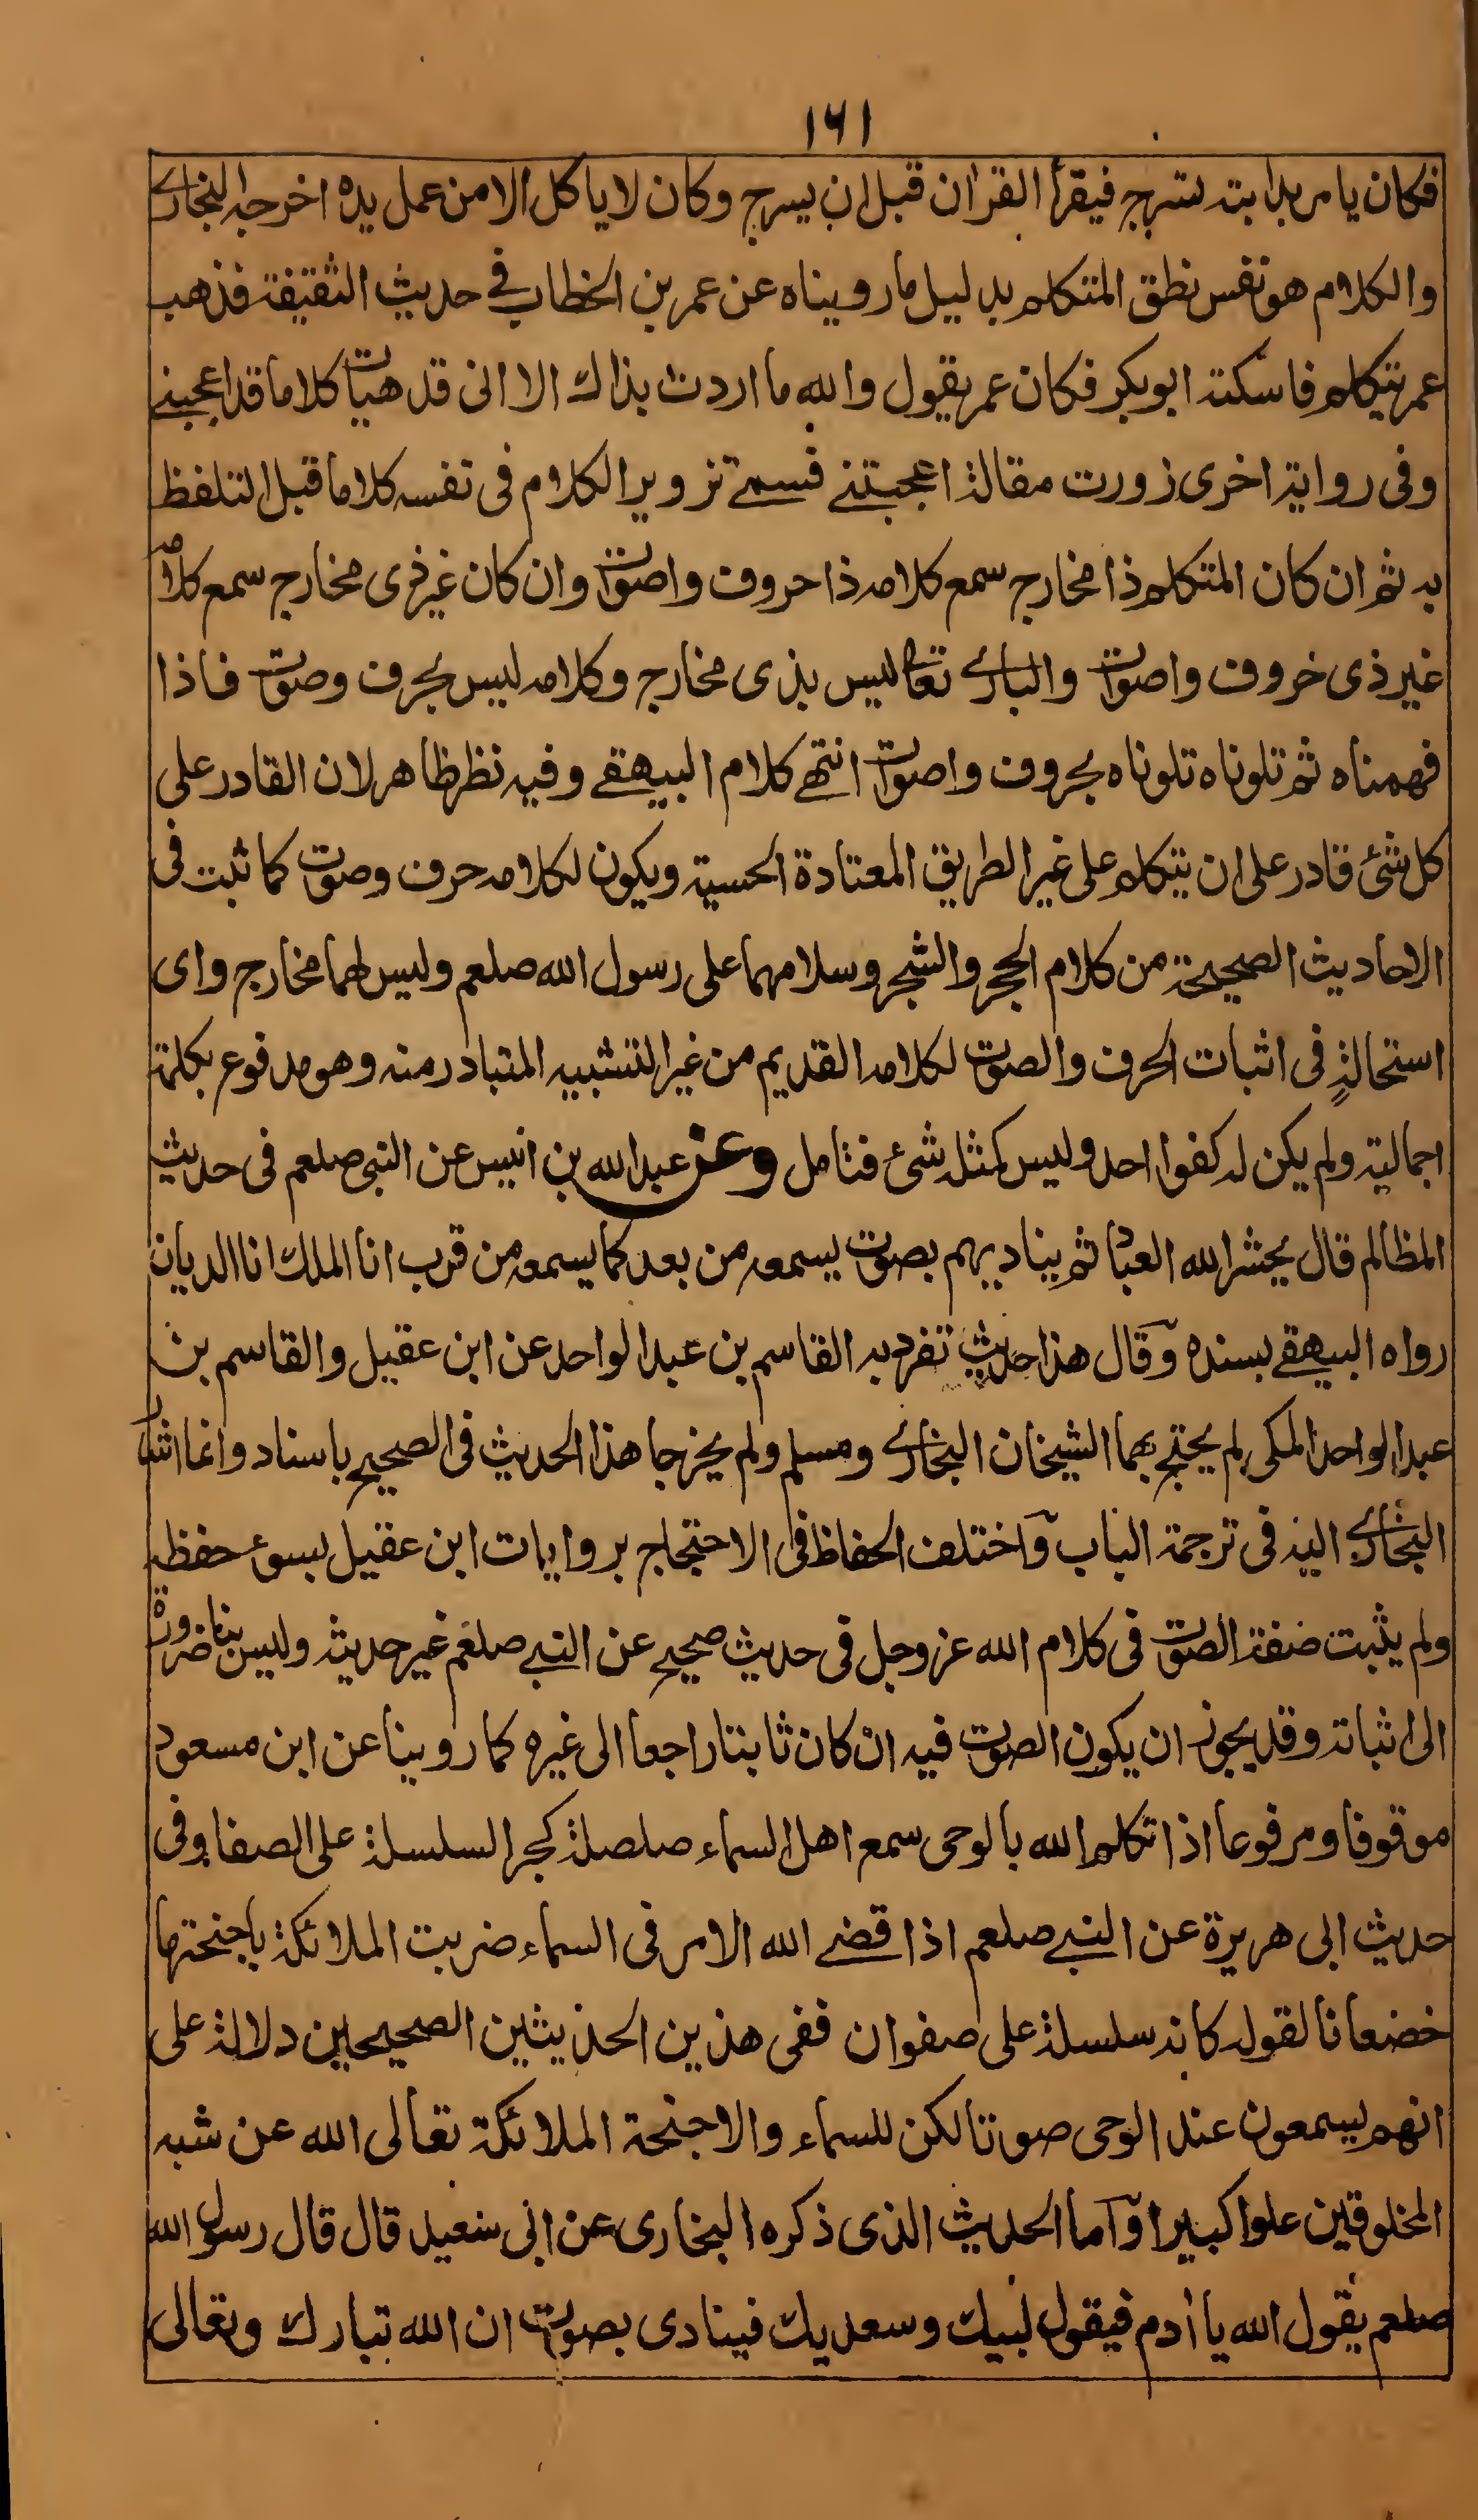 ١٦١
فكان يامر بدابته تسرج فيقرأ القرٰان قبل ان يسرج وكان لا ياكل الا من عمل يده اخرجه البخاري
والكلام هو نفس نطق المتكلم بدليل ما رويناه عن عمر بن الخطاب في حديث الثقيفة فذهب
عمر يتكلم فاسكته ابو بكر فكان عمر يقول والله ما اردت بذاك الا انى قد هيات كلاما قد اعجبني
وفى رواية اخرى زورت مقالة اعجبتني فسمى تزوير الكلام فى نفسه كلاما قبل التلفظ
به ثم ان كان المتكلم ذا مخارج سمع كلامه ذا حروف واصوات وان كان غير ذى مخارج سمع كلامه
غير ذى حروف واصوات والباري تعالى ليس بذى مخارج وكلامه ليس بحرف وصوت فاذا
فهمناه ثم تلوناه تلوناه بحروف واصوات انتهى كلام البيهقي وفيه نظر ظاهر لان القادر على
كل شئ قادر على ان يتكلم على غير الطريق المعتادة الحسية ويكون لكلامه حرف وصوت كما ثبت فى
الاحاديث الصحيحة من كلام الحجر والشجر وسلامهما على رسول الله صلعم وليس لهما مخارج واى
استحالةٍ فى اثبات الحرف والصوت لكلامه القديم من غير التشبيه المتبادر منه وهو مدفوع بكلمة
اجمالية ولم يكن له كفوا احد وليس كمثله شئ فتامل وعن عبد الله بن انيس عن النبى صلعم فى حديث
المظالم قال يحشر الله العباد ثم يناديهم بصوت يسمعه من بعد كما يسمعه من قرب انا الملك انا الديان
رواه البيهقي بسنده وقال هذا حديث تفرد به القاسم بن عبد الواحد عن ابن عقيل والقاسم بن
عبد الواحد المكى لم يحتج بهما الشيخان البخاري ومسلم ولم يخرجا هذا الحديث فى الصحيح باسناد وانما اشار
البخاري اليه فى ترجمة الباب واختلف الحفاظ فى الاحتجاج بروايات ابن عقيل لسوء حفظه
ولم يثبت صفة الصوت فى كلام الله عز وجل فى حديث صحيح عن النبي صلعم غير حديثه وليس بنا ضرورة
الى اثباته وقد يجوز ان يكون الصوت فيه ان كان ثابتا راجعا الى غيره كما روينا عن ابن مسعود
موقوفا ومرفوعا اذا تكلم الله بالوحى سمع اهل السماء صلصلة كجر السلسلة على الصفا وفى
حديث ابى هريرة عن النبي صلعم اذا قضى الله الامر فى السماء ضربت الملائكة باجنحتها
خضعانا لقوله كانه سلسلة على صفوان ففى هذين الحديثين الصحيحين دلالة على
انهم يسمعون عند الوحى صوتا لكن للسماء والاجنحة الملائكة تعالى الله عن شبه
المخلوقين علوا كبيرا واما الحديث الذى ذكره البخارى عن ابى سعيد قال قال رسول الله
صلعم يقول الله يا أدم فيقول لبيك وسعديك فينادى بصوت ان الله تبارك وتعالى